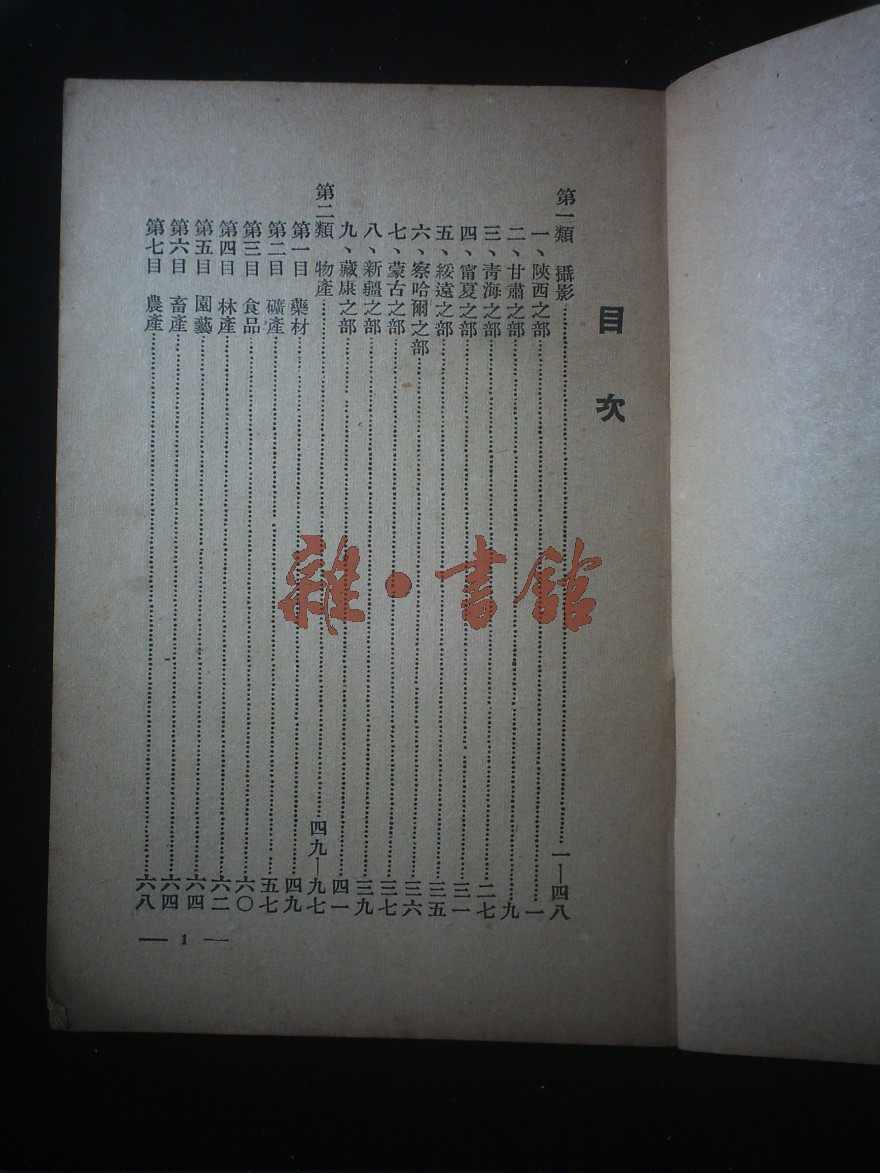 目次
第一類 攝影……一—四八
一、陝西之部……一
二、甘肅之部……九
三、青海之部……二七
四、甯夏之部……三一
五、綏遠之部……三五
六、察哈爾之部……三六
七、蒙古之部……三七
八、新疆之部……三九
九、藏康之部……四一
第二類 物產……四九—九七
第一目 藥材……四九
第二目 礦產……五七
第三目 食品……六〇
第四目 林產……六二
第五目 園藝……六四
第六目 畜產……六四
第七目 農產……六八
— 1 —
雜·書館